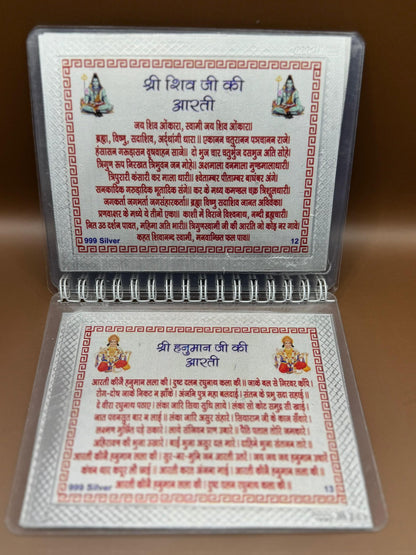 श्री शिव जी की
आरती
जय शिव ओंकारा, स्वामी जय शिव ओंकारा॥
ब्रह्मा, विष्णु, सदाशिव, अर्द्धांगी धारा ॥ एकानन चतुरानन पंचानन राजे।
हंसासन गरूड़ासन वृषवाहन साजे॥ दो भुज चार चतुर्भुज दसभुज अति सोहे।
त्रिगुण रूप निरखत त्रिभुवन जन मोहे॥ अक्षमाला वनमाला मुण्डमालाधारी।
त्रिपुरारी कंसारी कर माला धारी॥ श्वेताम्बर पीताम्बर बाघंबर अंगे।
सनकादिक गरुड़ादिक भूतादिक संगे॥ कर के मध्य कमण्डल चक्र त्रिशूलधारी।
जगकर्ता जगभर्ता जगसंहारकर्ता॥ ब्रह्मा विष्णु सदाशिव जानत अविवेका॥
प्रणवाक्षर के मध्ये ये तीनों एका॥ काशी में विराजे विश्वनाथ, नन्दी ब्रह्मचारी।
नित उठ दर्शन पावत, महिमा अति भारी॥ त्रिगुणस्वामी जी की आरति जो कोइ नर गावे।
कहत शिवानन्द स्वामी, मनवाञ्छित फल पावे॥
999 Silver 12
श्री हनुमान जी की
आरती
आरती कीजै हनुमान लला की। दुष्ट दलन रघुनाथ कला की ॥ जाके बल से गिरवर काँपे।
रोग-दोष जाके निकट न झाँके। अंजनि पुत्र महा बलदाई। संतन के प्रभु सदा सहाई।
दे वीरा रघुनाथ पठाए। लंका जारि सिया सुधि लाये। लंका सो कोट समुद्र सी खाई।
जात पवनसुत बार न लाई। लंका जारि असुर संहारे। सियाराम जी के काज सँवारे।
लक्ष्मण मूर्छित पड़े सकारे। लाये संजिवन प्राण उबारे। पैठि पताल तोरि जमकारे।
अहिरावण की भुजा उखारे। बाईं भुजा असुर दल मारे। दाहिने भुजा संतजन तारे॥
आरती कीजै हनुमान लला की। सुर-नर-मुनि जन आरती उतारे। जय जय जय हनुमान उचारे।
कंचन थार कपूर लौ छाई । आरती करत अंजना माई। आरती कीजै हनुमान लला की ॥
आरती कीजै हनुमान लला की । दुष्ट दलन रघुनाथ कला की॥
999 Silver 13